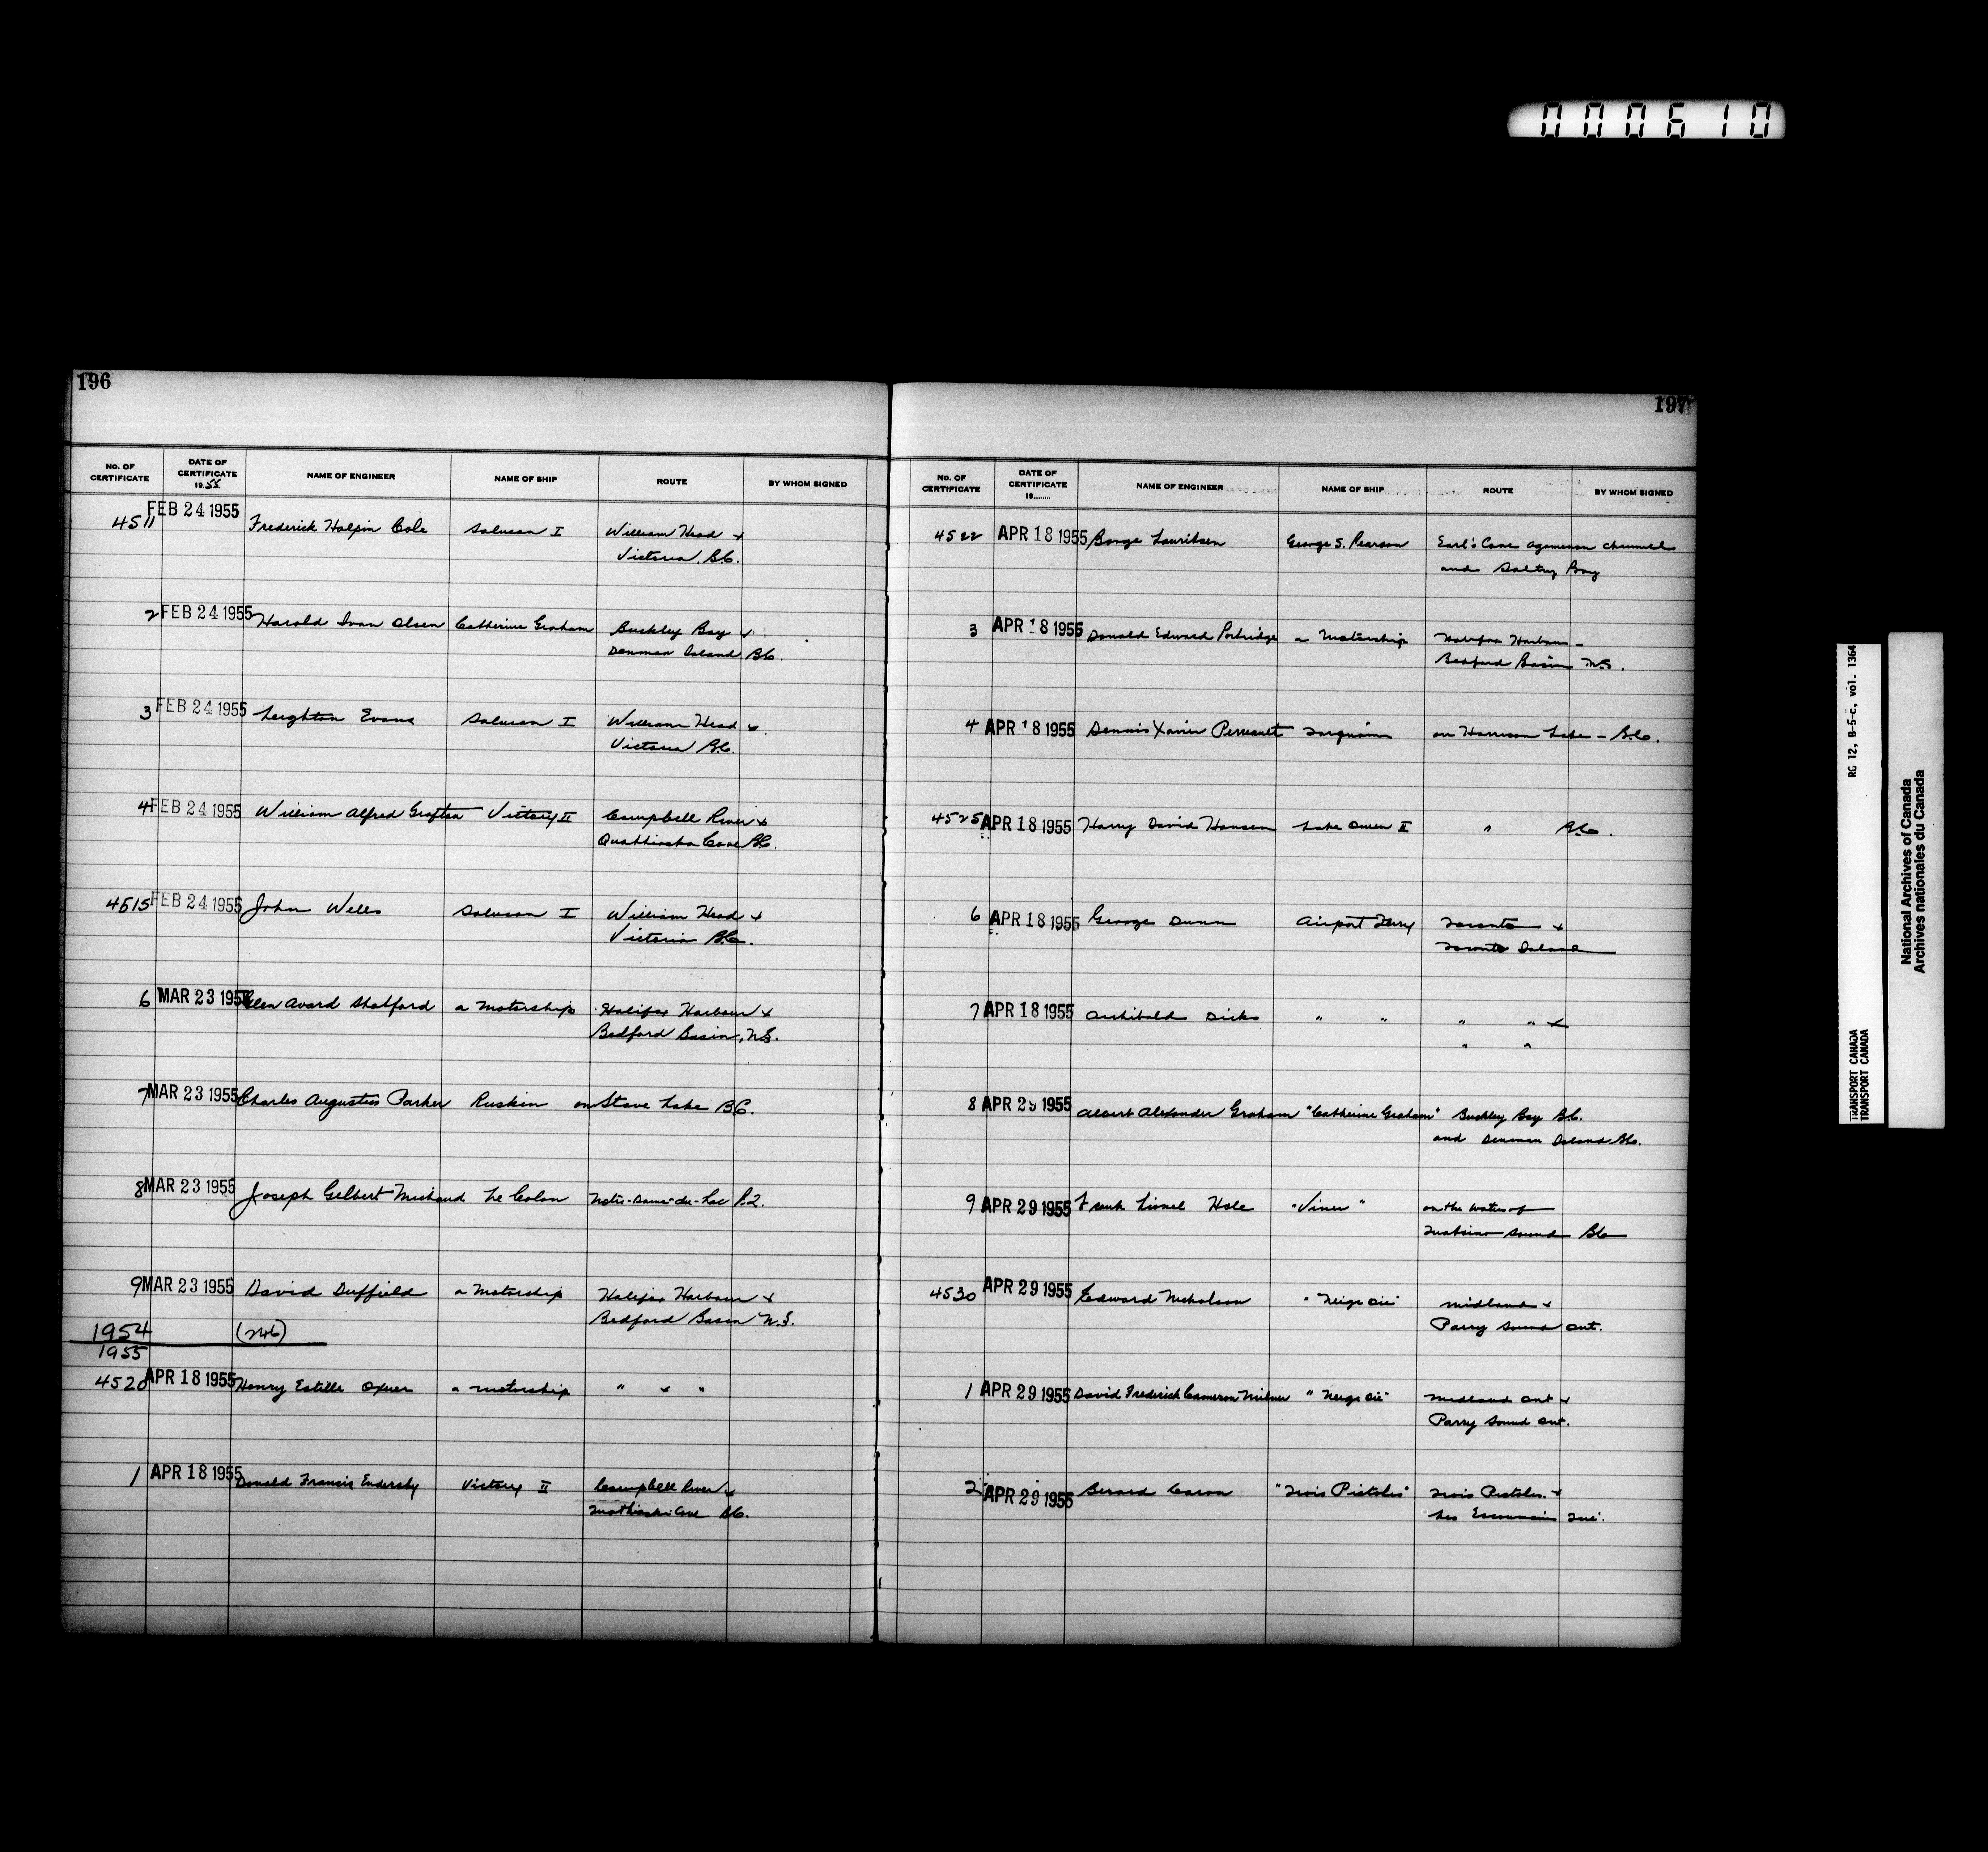 000610
196
No. OF CERTIFICATE DATE OF CERTIFICATE 1955 NAME OF ENGINEER NAME OF SHIP ROUTE BY WHOM SIGNED
4511 FEB 24 1955 Frederick Halpin Cole Salvan I William Head &
Victoria, B.C.
2 FEB 24 1955 Harold Ivan Olsen Catherine Graham Buckley Bay &
Denman Island B.C.
3 FEB 24 1955 Leighton Evans Salvan I William Head &
Victoria B.C.
4 FEB 24 1955 William Alfred Grafton Victory II Campbell River &
Quathiaska Cove B.C.
4515 FEB 24 1955 John Wells Salvan I William Head &
Victoria B.C.
6 MAR 23 1955 Glen Avard Shatford a Motorship Halifax Harbour &
Bedford Basin, N.S.
7 MAR 23 1955 Charles Augustus Parker Ruskin on Stave Lake B.C.
8 MAR 23 1955 Joseph Gilbert Michaud Le Colon Notre-Dame-du-Lac P.Q.
9 MAR 23 1955 David Duffield a Motorship Halifax Harbour &
Bedford Basin N.S.
1954 (246)
1955
4520 APR 18 1955 Henry Estille Oxner a motorship " & "
1 APR 18 1955 Donald Francis Endersby Victory II Campbell River &
Quathiaski Cove B.C.
197
No. OF CERTIFICATE DATE OF CERTIFICATE 19 NAME OF ENGINEER NAME OF SHIP ROUTE BY WHOM SIGNED
4522 APR 18 1955 Borge Lauritsen George S. Pearson Earl's Cove Agamemnon Channel
and Saltry Bay
3 APR 18 1955 Donald Edward Portridge a Motorship Halifax Harbour -
Bedford Basin N.S.
4 APR 18 1955 Dennis Xavier Perreault on Harrison Lake - B.C.
4525 APR 18 1955 Harry David Hansen Lake Queen II " B.C.
6 APR 18 1955 George Dunn Airport Ferry Toronto &
Toronto Island
7 APR 18 1955 Archibald Dicks " " " " &
" "
8 APR 29 1955 Albert Alexander Graham "Catherine Graham" Buckley Bay B.C.
and Denman Island B.C.
9 APR 29 1955 Frank Lionel Hole "Viner" on the waters of
Quatsino Sound B.C.
4530 APR 29 1955 Edward Nicholson Midland &
Parry Sound Ont.
1 APR 29 1955 David Frederick Cameron Milner Midland Ont &
Parry Sound Ont.
2 APR 29 1955 Bernard Caron "Trois Pistoles" Trois Pistoles &
Les Escoumins Que.
RG 12, B-5-c, vol. 1364
TRANSPORT CANADA
TRANSPORT CANADA
National Archives of Canada
Archives nationales du Canada